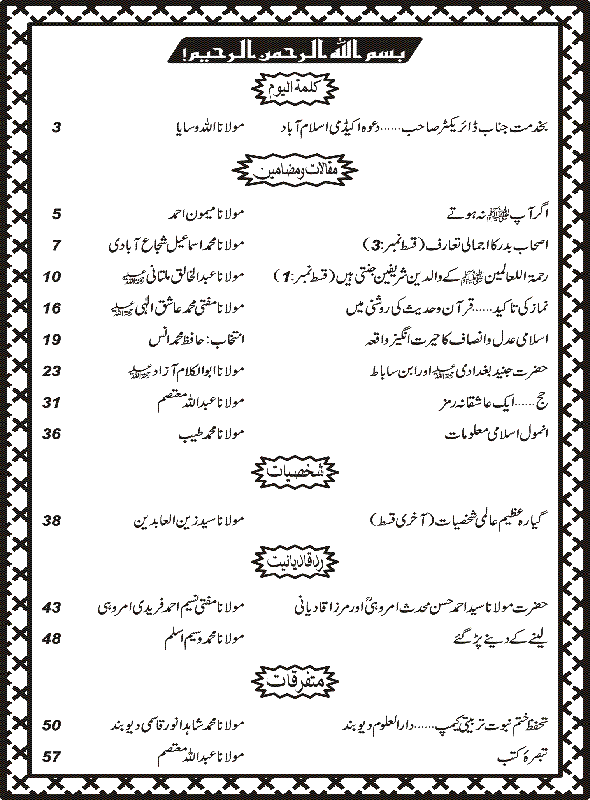 بسم اللہ الرحمن الرحیم!
کلمۃ الیوم
بخدمت جناب ڈائریکٹر صاحب......دعوہ اکیڈمی اسلام آباد مولانا اللہ وسایا 3
مقالات و مضامین
اگر آپ ﷺ نہ ہوتے مولانا میمون احمد 5
اصحاب بدر کا اجمالی تعارف (قسط نمبر:3) مولانا محمد اسماعیل شجاع آبادی 7
رحمۃ اللعالمین ﷺ کے والدین شریفین جنتی ہیں (قسط نمبر:1) مولانا عبدالخالق ملتانی رحمۃ اللہ علیہ 10
نماز کی تاکید......قرآن و حدیث کی روشنی میں مولانا مفتی محمد عاشق الہی رحمۃ اللہ علیہ 16
اسلامی عدل و انصاف کا حیرت انگیز واقعہ انتخاب: حافظ محمد انس 19
حضرت جنید بغدادی رحمۃ اللہ علیہ اور ابن ساباط مولانا ابوالکلام آزاد رحمۃ اللہ علیہ 23
حج......ایک عاشقانہ رمز مولانا عبداللہ معتصم 31
انمول اسلامی معلومات مولانا محمد طیب 36
شخصیات
گیارہ عظیم عالمی شخصیات (آخری قسط) مولانا سید زین العابدین 38
رد قادیانیت
حضرت مولانا سید احمد حسن محدث امروہیؒ اور مرزا قادیانی مولانا مفتی نسیم احمد فریدی امروہی 43
لینے کے دینے پڑ گئے مولانا محمد وسیم اسلم 48
متفرقات
تحفظ ختم نبوت تربیتی کیمپ......دارالعلوم دیوبند مولانا محمد شاہد انور قاسمی دیوبند 50
تبصرۂ کتب مولانا عبداللہ معتصم 57